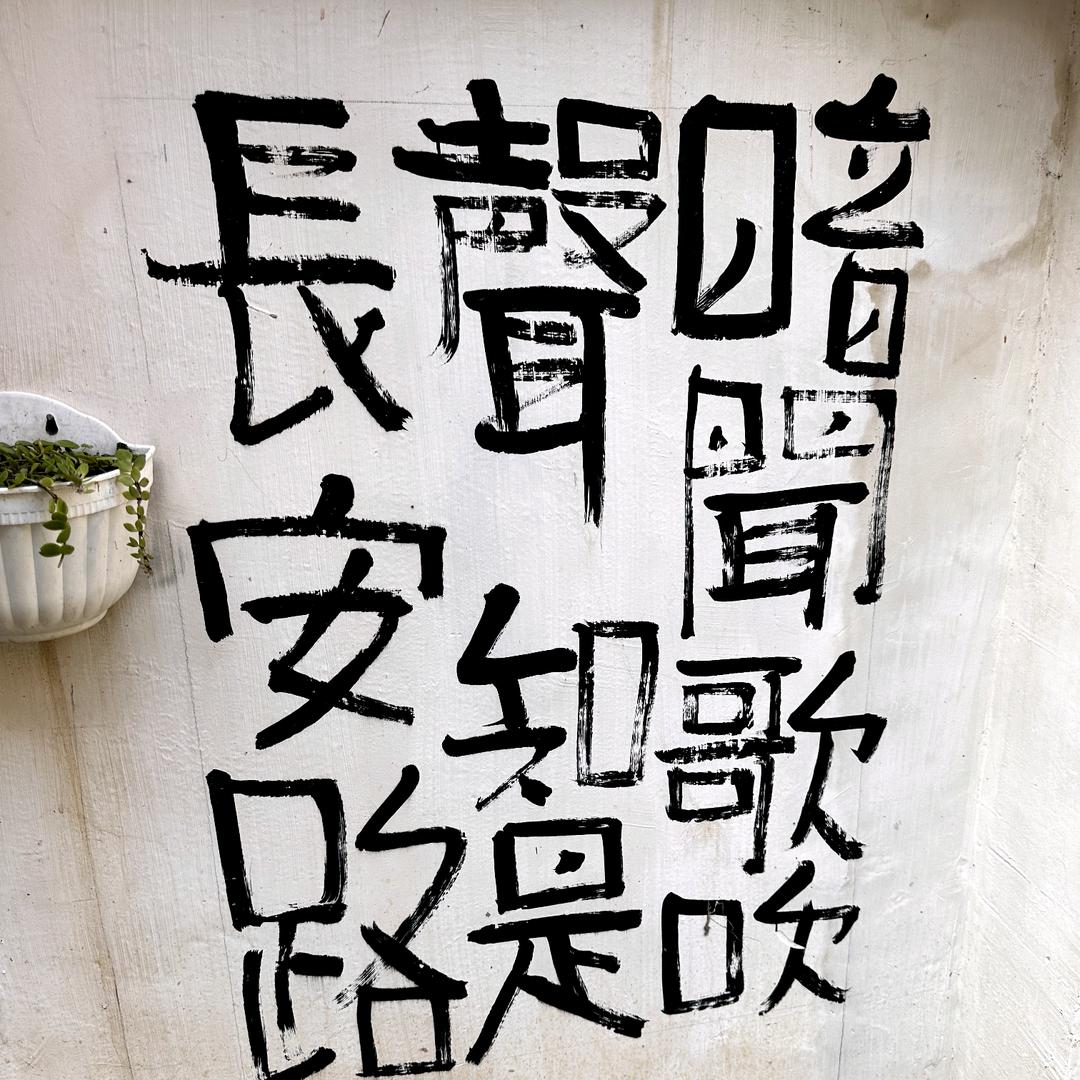 暗聞歌吹
聲知是
長安路